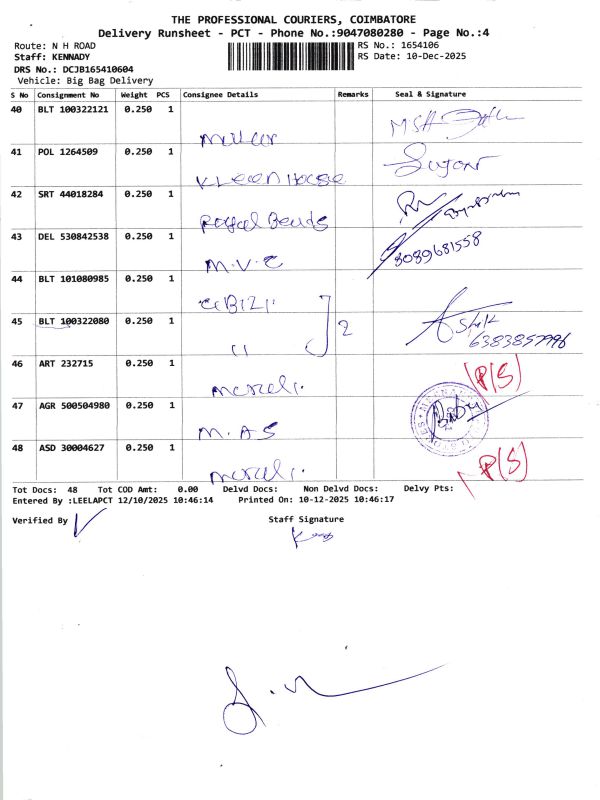 THE PROFESSIONAL COURIERS, COIMBATORE
Delivery Runsheet - PCT - Phone No.:9047080280 - Page No.:4
Route: N H ROAD RS No.: 1654106
Staff: KENNADY RS Date: 10-Dec-2025
DRS No.: DCJB165410604
Vehicle: Big Bag Delivery
S No Consignment No Weight PCS Consignee Details Remarks Seal & Signature
40 BLT 100322121 0.250 1
41 POL 1264509 0.250 1
Kleen House
42 SRT 44018284 0.250 1
Royal Beads
43 DEL 530842538 0.250 1 8089681558
M.V.C
44 BLT 101080985 0.250 1
45 BLT 100322080 0.250 1 2
11 6383857996
46 ART 232715 0.250 1 P(S)
47 AGR 500504980 0.250 1
M.AS
48 ASD 30004627 0.250 1 P(S)
Tot Docs: 48 Tot COD Amt: 0.00 Delvd Docs: Non Delvd Docs: Delvy Pts:
Entered By :LEELAPCT 12/10/2025 10:46:14 Printed On: 10-12-2025 10:46:17
Verified By Staff Signature